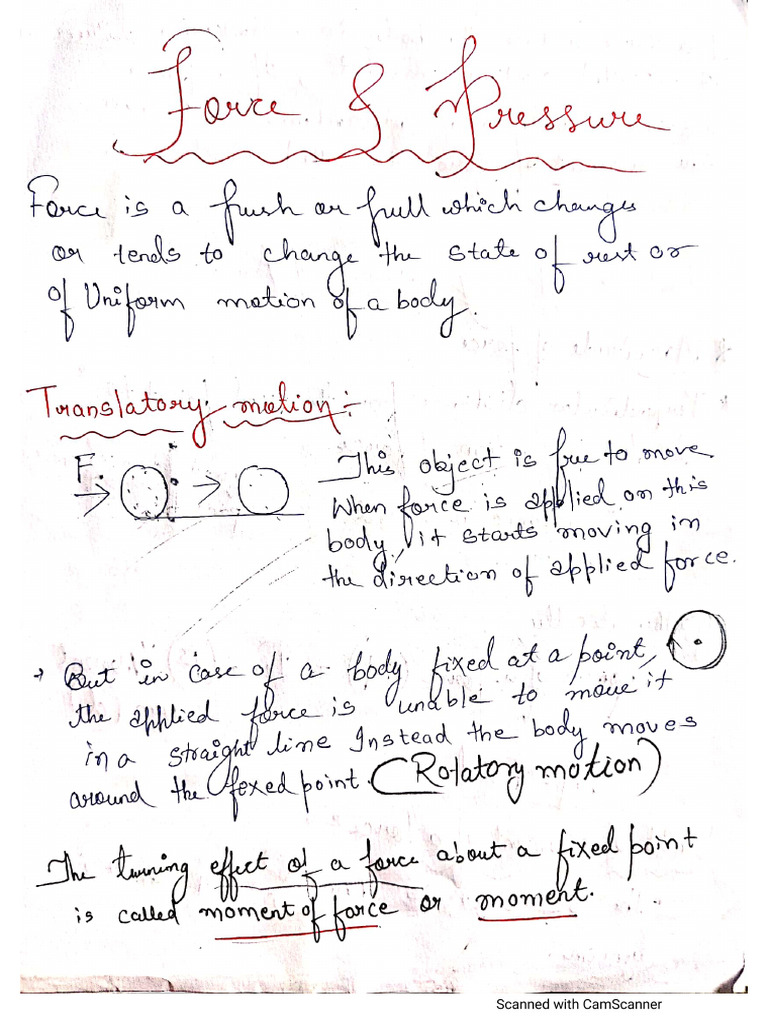 Force & Pressure
Force is a push or pull which changes
or tends to change the state of rest or
of Uniform motion of a body.
Translatory motion :-
F.
This object is free to move.
When force is applied on this
body, it starts moving in
the direction of applied force.
→ But in case of a body fixed at a point,
the applied force is unable to move it
in a straight line Instead the body moves
around the fexed point. (Rotatory motion)
The turning effect of a force about a fixed point
is called moment of force or moment.
Scanned with CamScanner